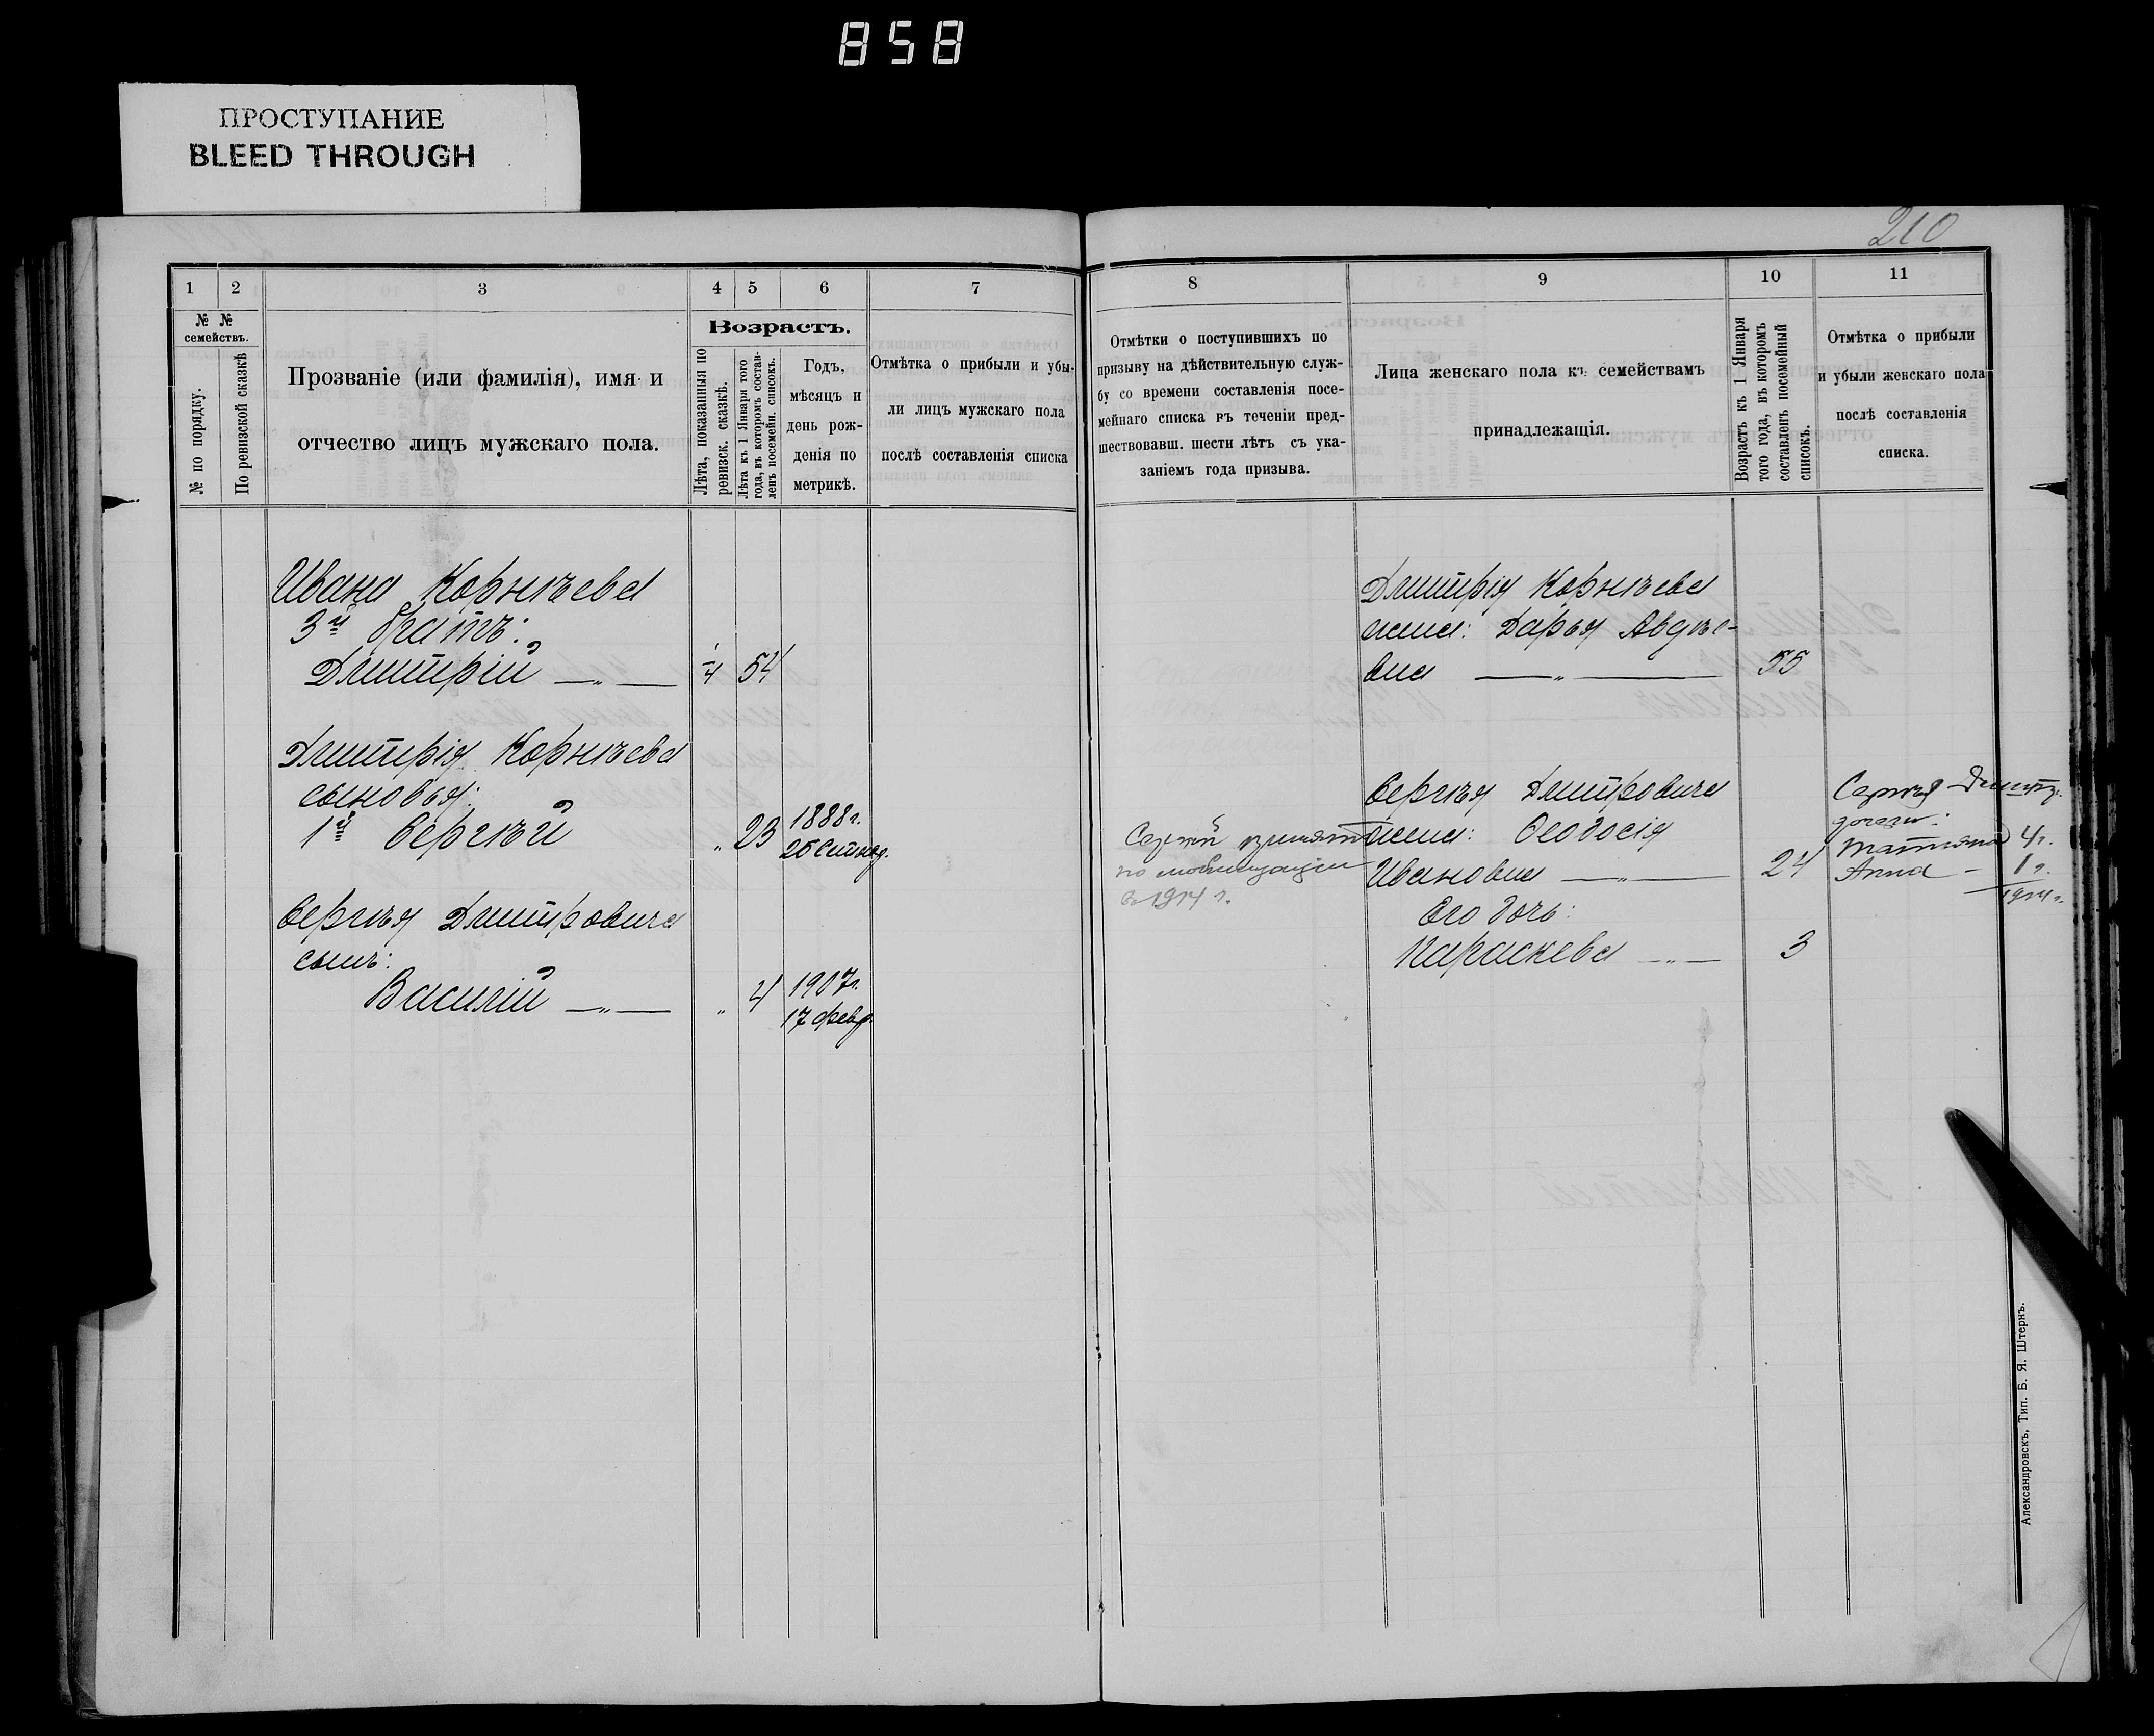 858
ПРОСТУПАНИЕ
BLEED THROUGH
210
1 2 3 4 5 6 7
№ № семействъ.
№ по порядку.
По ревизской сказкѣ
Прозваніе (или фамилія), имя и
отчество лицъ мужскаго пола.
Возрастъ.
Лѣта, показанныя по
ревизск. сказкѣ.
Лѣта къ 1 Января того
года, въ которомъ состав-
ленъ посемейн. списокъ.
Годъ,
мѣсяцъ и
день рож-
денія по
метрикѣ.
Отмѣтка о прибыли и убы-
ли лицъ мужскаго пола
послѣ составленія списка
Ивана Корнѣева
3й братъ:
Дмитрій —„— 54
Дмитрія Корнѣева
сыновья:
1й Сергѣй „ 23 1888г.
Сергѣя Дмитровича
сынъ:
Василій —„— „ 4 1907г.
17 февр.
8 9 10 11
Отмѣтки о поступившихъ по
призыву на дѣйствительную служ-
бу со времени составленія посе-
мейнаго списка въ теченіи пред-
шествовавш. шести лѣтъ съ ука-
заніемъ года призыва.
Лица женскаго пола къ семействамъ
принадлежащія.
Возрастъ къ 1 Января
того года, въ которомъ
составленъ посемейный
списокъ.
Отмѣтка о прибыли
и убыли женскаго пола
послѣ составленія
списка.
Дмитрія Корнѣева
жена: Дарья Авдѣе-
вна —„— 55
Сергѣя Дмитровича
жена: Ѳеодосія
Ивановна —„— 24
Его дочь:
Параскева —„— 3
Сергѣй принятъ
по мобилизаціи
в 1914 г.
Сергѣя Дмитр.
дочери:
Татьяна 4г.
Анна — 1 г.
1914 г.
Александровскъ, Тип. Б. Я. Штернъ.